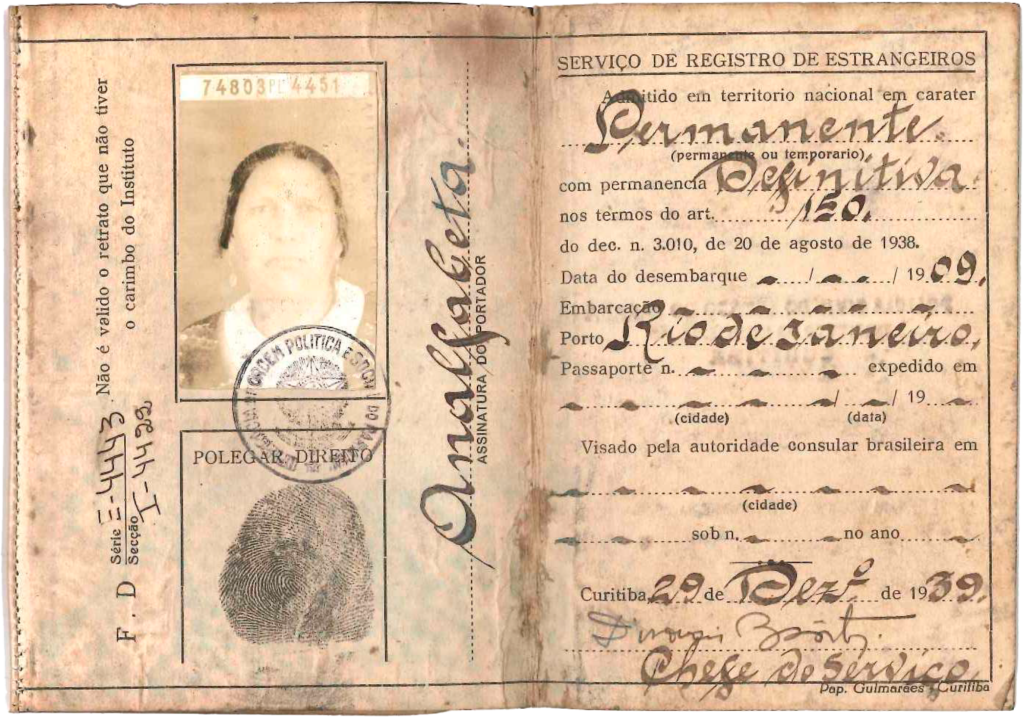 74803 4451
Não é valido o retrato que não tiver
o carimbo do Instituto
F. D
Série E-4443
Secção I-4422
ORDEM POLITICA E SOCIAL DO PARANÁ
POLEGAR DIREITO
Analfabeta.
ASSINATURA DO PORTADOR
SERVIÇO DE REGISTRO DE ESTRANGEIROS
Admitido em territorio nacional em carater
Permanente.
(permanente ou temporario),
com permanencia Definitiva
nos termos do art. 150.
do dec. n. 3.010, de 20 de agosto de 1938.
Data do desembarque - / - - / 19 09.
Embarcação - - - - - - -
Porto Rio de Janeiro.
Passaporte n. - - - - expedido em
- - - - - / - / 19 -
(cidade) (data)
Visado pela autoridade consular brasileira em
- - - - - - -
(cidade)
- - - sob n. - - - no ano - -
Curitiba, 29 de Dezº de 1939.
Chefe do Serviço
Pap. Guimarães - Curitiba